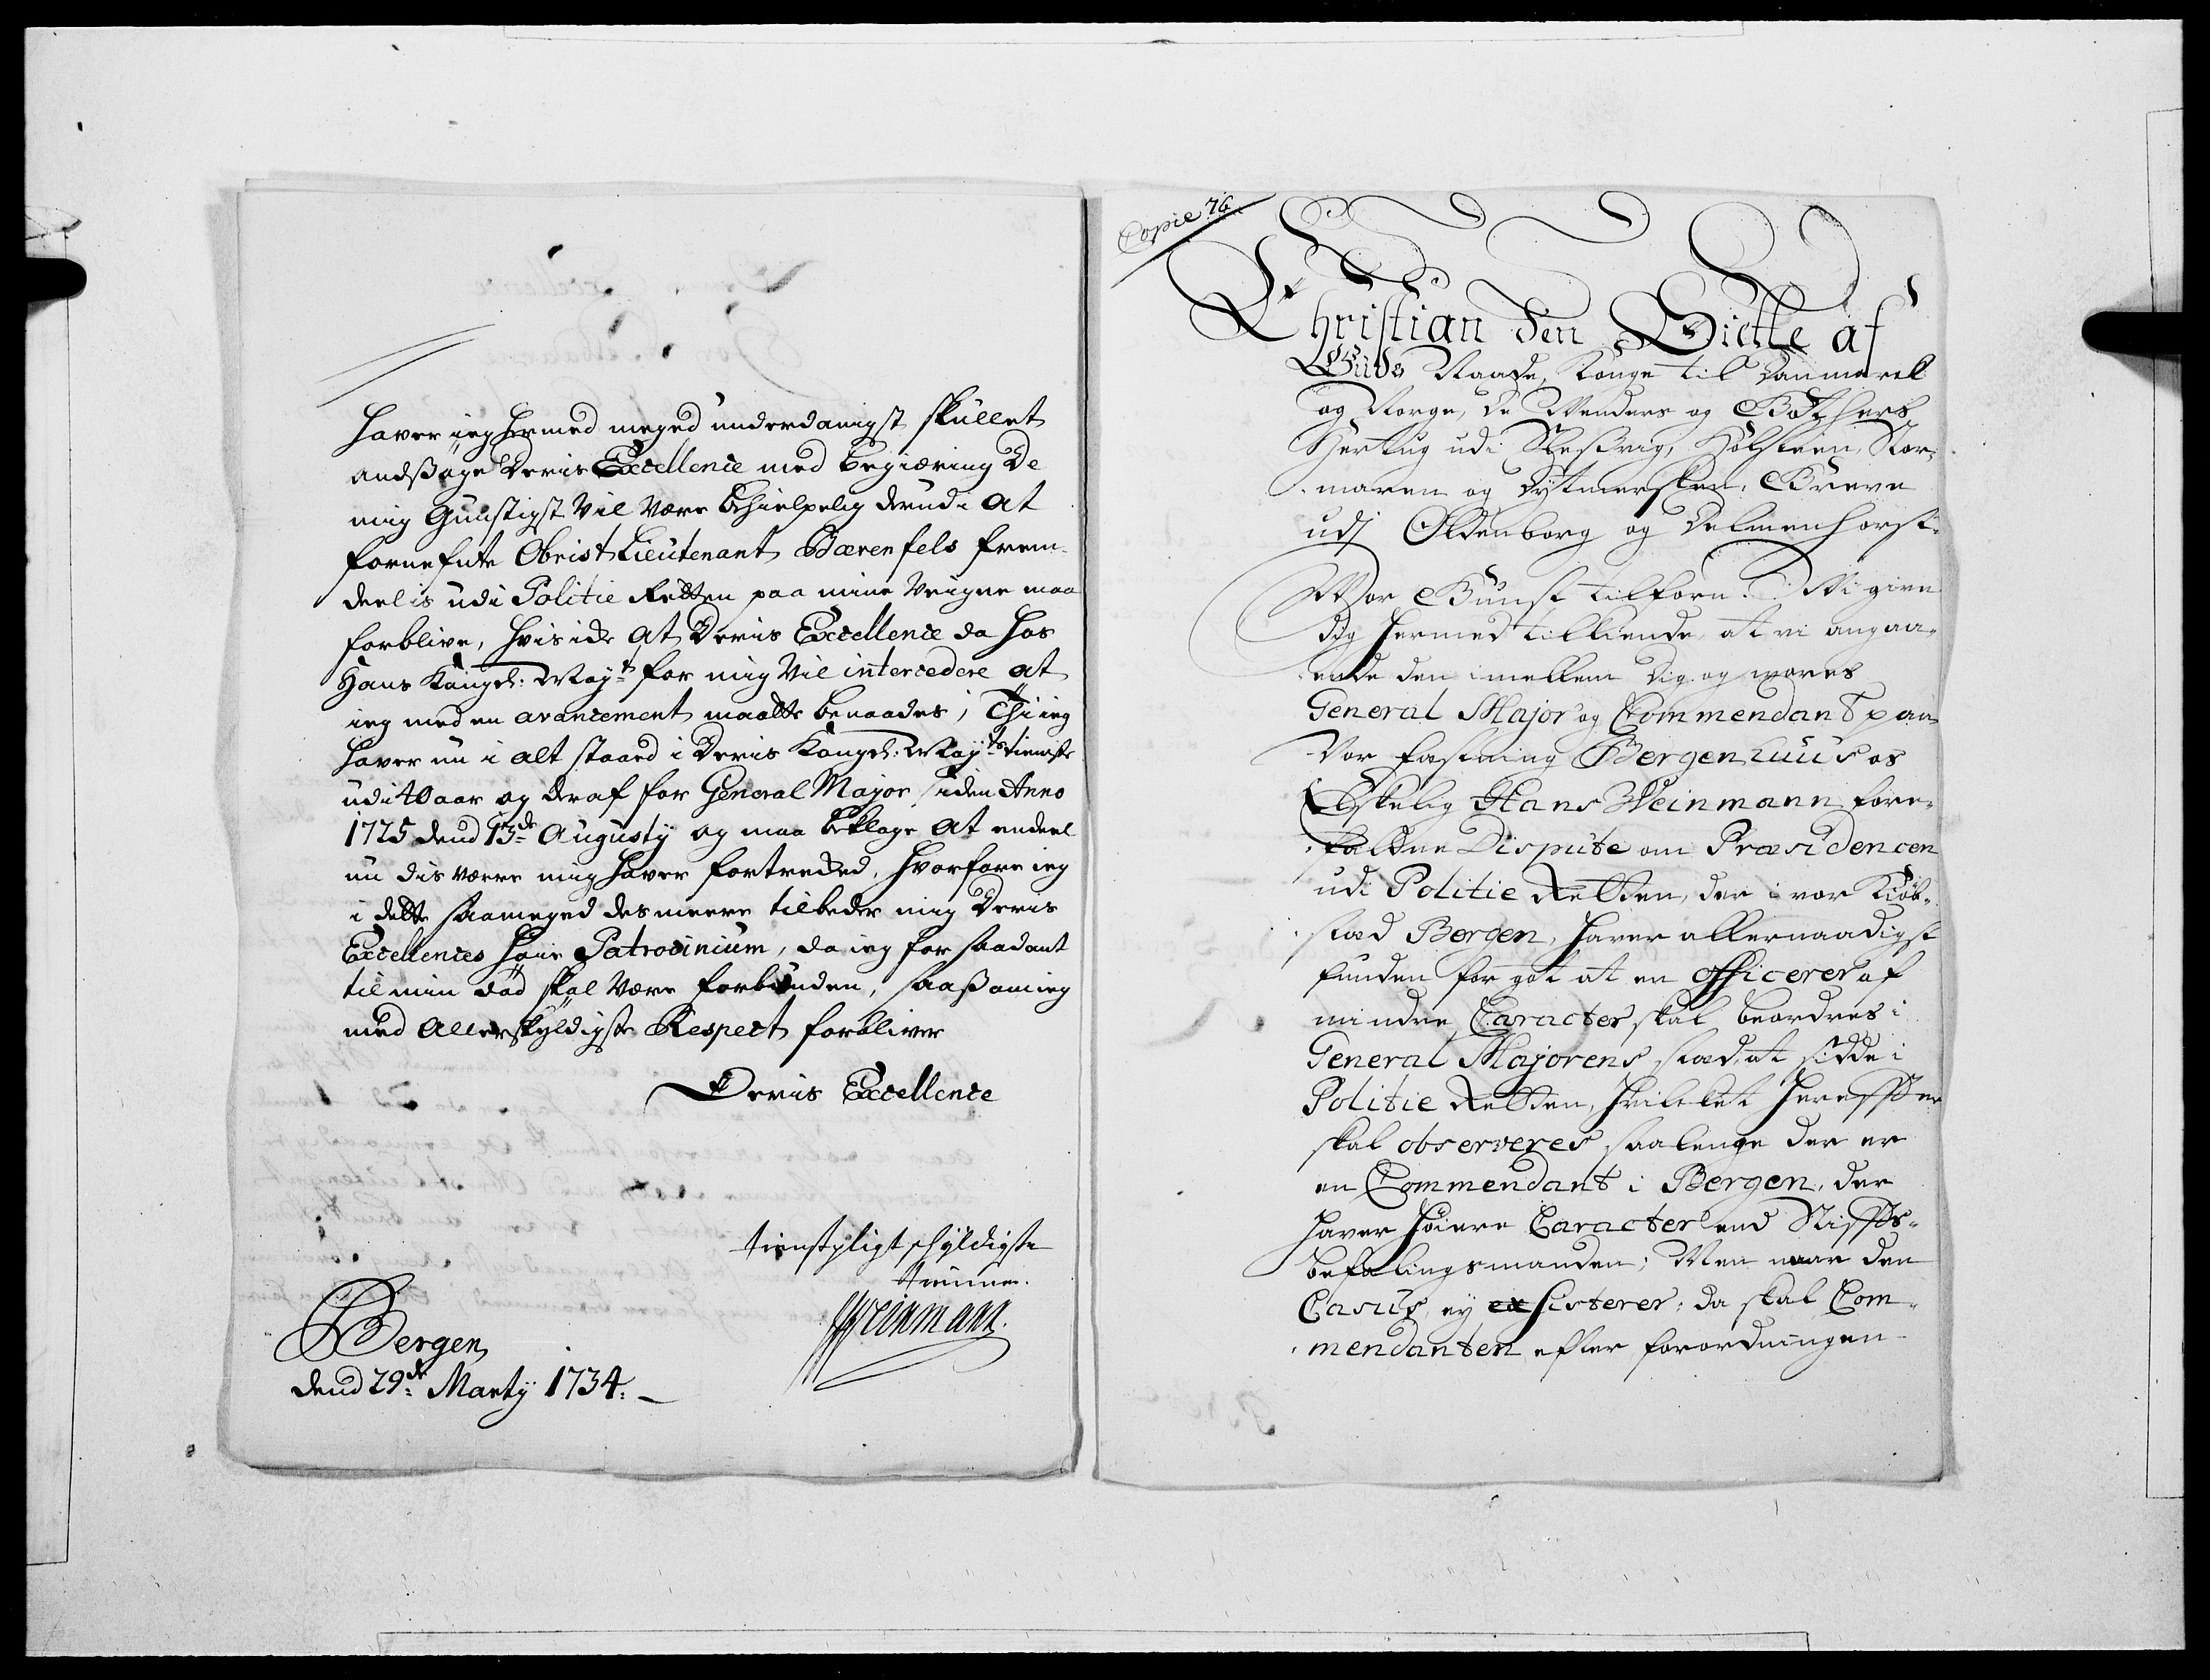 haver ieg hermed meged underdanigst skullet
andsøge Deris Excellence med begiæring De
mig Gunstigst vil være behielpelig derudi at
fornefnte Obrist Lieutenant Bærenfels frem-
deelis udi Politie Retten paa mine Veigne maa
forblive, hvis ide at Deris Excellence da hos
Hans Kongl: Mayt for mig vil intercedere at
ieg med en avancement maatte benaades, Thi ieg
haver nu i alt staaed i Deris Kongl: Mayts tieniste
udi 40 aar og deraf for General Major siden Anno
1725 dend 13de Augusty og maa beklage at endeel
nu dis værre mig haver fortreded, hvorfore ieg
i dette saameged des meere tilbeder mig Deris
Excellences høie Patrocinium, da ieg for saadant
til min død skal være forbunden, saasom ieg
med allerskyldigste Respect forbliver
Deris Excellence
tienstpligtskyldigste
tienner.
HWeinmann.
Bergen
dend 29de Marty 1734.
Copie 76.
Christian den Siette af
Guds Naade, Konge til Danmarck
og Norge, de Wenders og Gothers
Hertug udi Slesvig, Holsteen, Stor-
maren og Dytmersken, Greve
udj Oldenborg og Delmenhorst.
Wor Gunst tilforn. Wi give
dig hermed tilkiende, at vi angaa-
ende den imellem dig og vores
General Major og Commendant paa
Vor fæstning Bergenhuus os
Elskelig Hans Weinmann fore-
faldne Dispute om Præsidencen
udi Politie Retten, der i vor Kiøb-
stæd Bergen, haver allernaadigst
funden for got at en officerer af
mindre Caracter skal beordres i
General Majorens stæd, at sidde i
Politie Retten, hvilket herefter
skal observeres saalenge der er
en Commendant i Bergen, der
haver høiere Caracter end Stifts-
befalingsmanden; Men naar den
Casus ey existerer; da skal Com-
mendanten efter forordningen